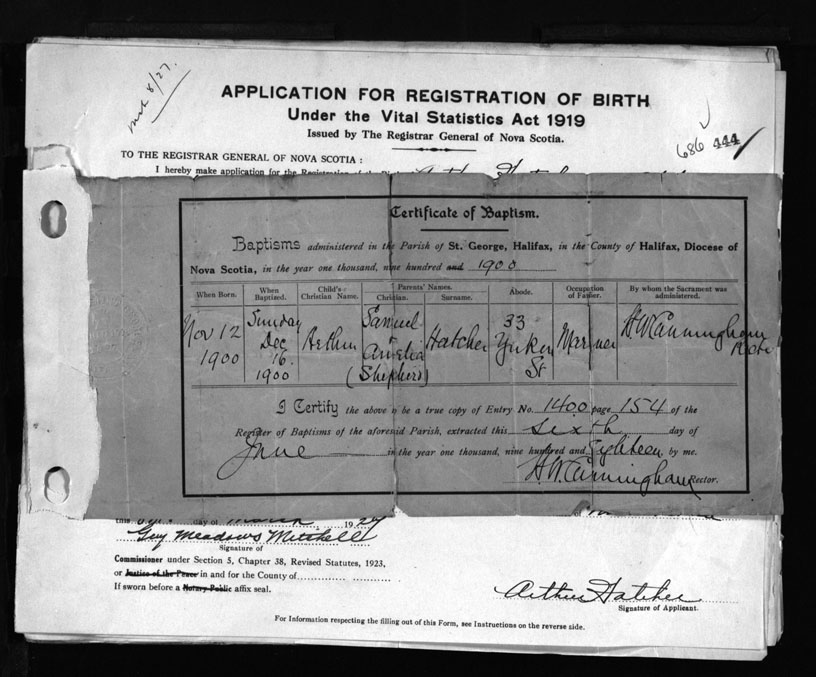 mch 8/27.
APPLICATION FOR REGISTRATION OF BIRTH
Under the Vital Statistics Act 1919
Issued by The Registrar General of Nova Scotia.
686 444
TO THE REGISTRAR GENERAL OF NOVA SCOTIA :
I hereby make application for the Registration of the
Certificate of Baptism.
Baptisms administered in the Parish of St. George, Halifax, in the County of Halifax, Diocese of
Nova Scotia, in the year one thousand, nine hundred and 1900
When Born. When Baptized. Child's Christian Name. Parents' Names. Christian. Surname. Abode. Occupation of Father. By whom the Sacrament was administered.
Nov 12 1900 Sunday Dec 16 1900 Arthur Samuel & Amelia (Shepherd) Hatcher 33 Yukon St Mariner H W Cunningham Rector
I Certify the above to be a true copy of Entry No. 1400 page 154 of the
Register of Baptisms of the aforesaid Parish, extracted this sixth day of
June in the year one thousand, nine hundred and Eighteen by me.
H W Cunningham Rector.
this day of March 1927
Guy Meadows Mitchell
Signature of
Commissioner under Section 5, Chapter 38, Revised Statutes, 1923,
or Justice of the Peace in and for the County of
If sworn before a Notary Public affix seal.
Arthur Hatcher
Signature of Applicant.
For Information respecting the filling out of this Form, see Instructions on the reverse side.